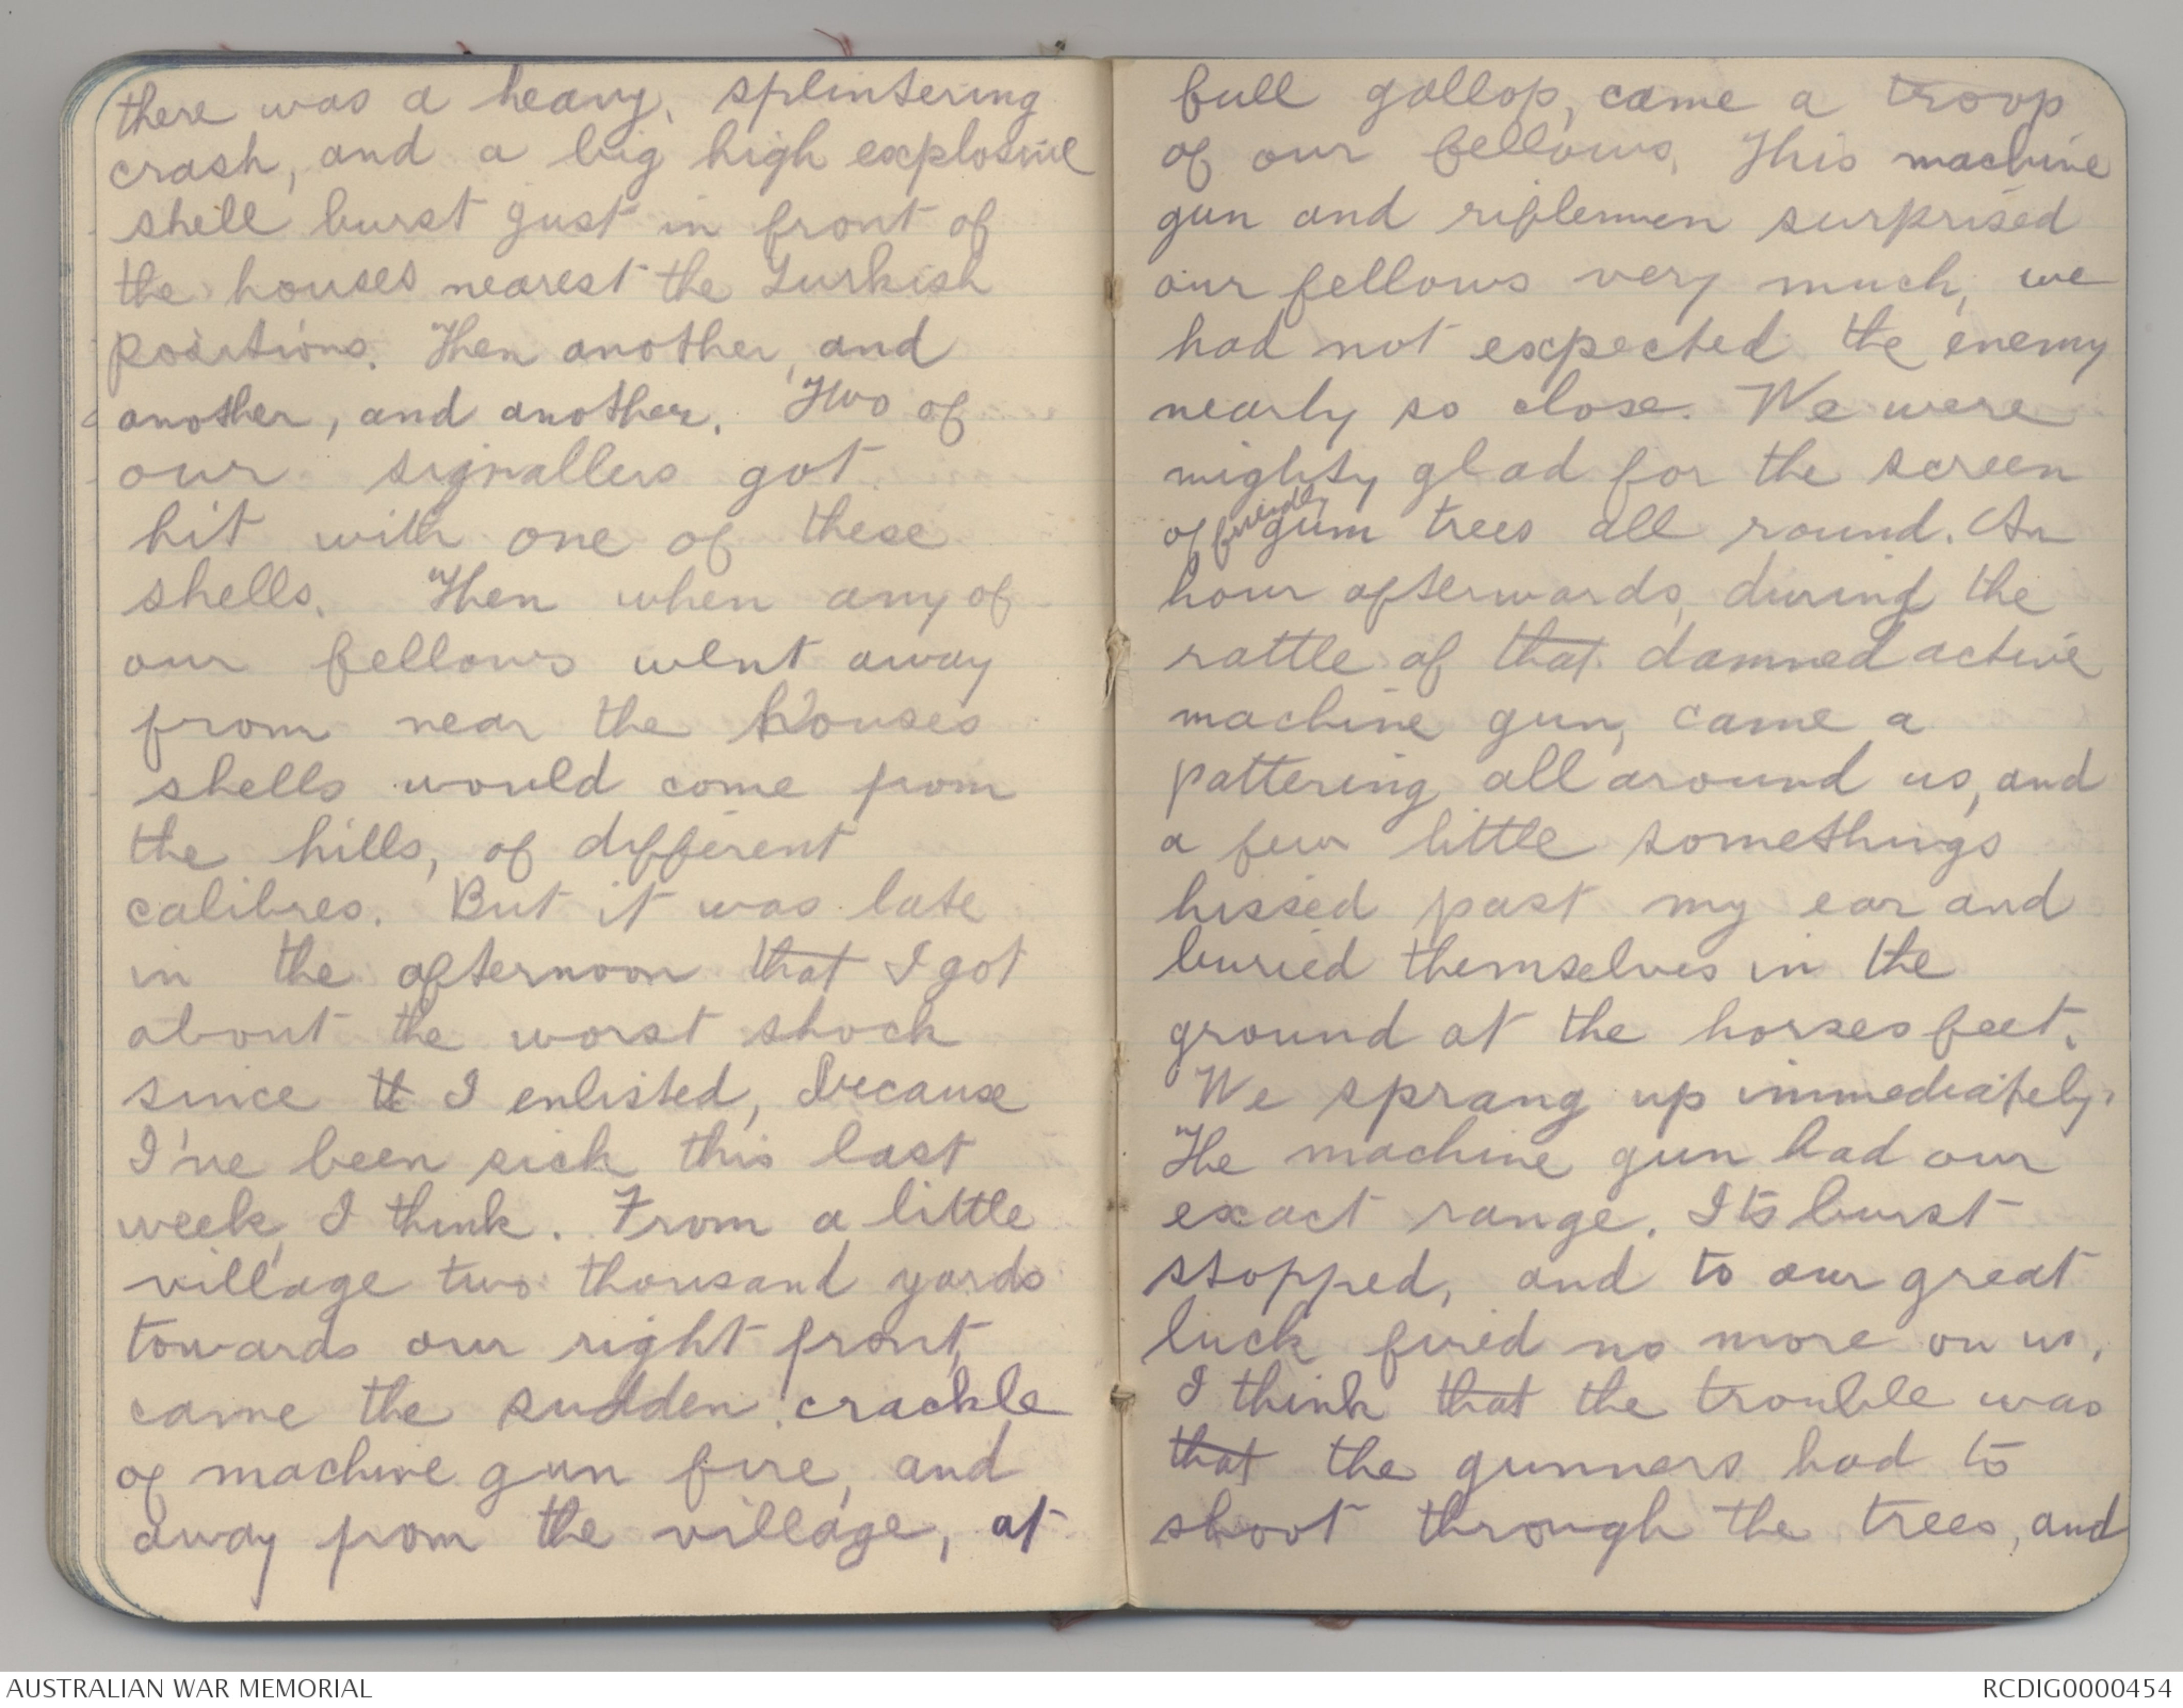 there was a heavy, splintering
crash, and a big high explosive
shell burst just in front of
the houses nearest the Turkish
positions. Then another, and
another, and another. Two of
our signallers got
hit with one of these
shells. Then when any of
our fellows went away
from near the houses
shells would come from
the hills, of different
calibres. But it was late
in the afternoon that I got
about the worst shock
since tt I enlisted, because
I've been sick this last
week, I think. From a little
village two thousand yards
towards our right front,
came the sudden crackle
of machine gun fire, and
away from the village, at
full gallop, came a troop
of our fellows. This machine
gun and riflemen surprised
our fellows very much, we
had not expected the enemy
nearly so close. We were
mighty glad for the screen
of friendly gum trees all round. An
hour afterwards, during the
rattle of that damned active
machine gun, came a
pattering all around us, and
a few little somethings
hissed past my ear and
buried themselves in the
ground at the horses feet.
We sprang up immediately.
The machine gun had our
exact range. Its burst
stopped, and to our great
luck fired no more on us.
I think that the trouble was
that the gunners had to
shoot through the trees, and
AUSTRALIAN WAR MEMORIAL
RCDIG0000454